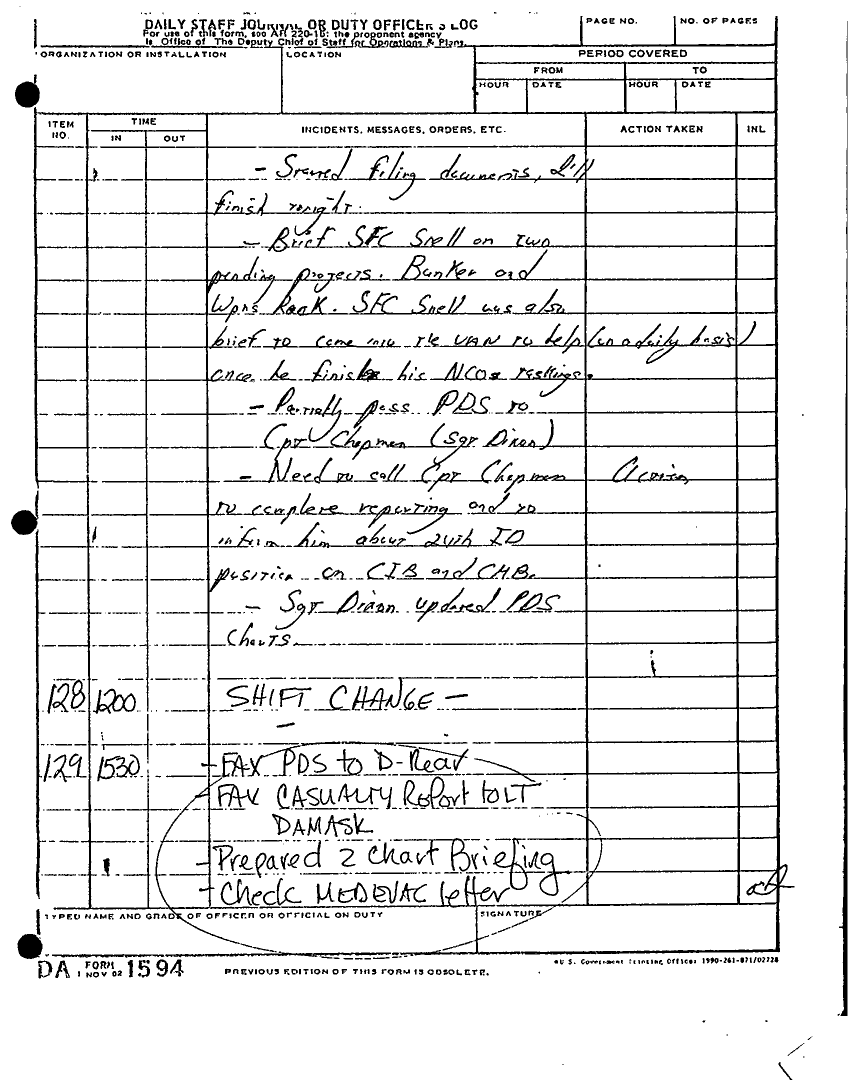 DAILY STAFF JOURNAL OR DUTY OFFICER'S LOG
For use of this form, see AR 220-15; the proponent agency
is Office of The Deputy Chief of Staff for Operations & Plans.
PAGE NO.
NO. OF PAGES
ORGANIZATION OR INSTALLATION
LOCATION
PERIOD COVERED
FROM
TO
HOUR
DATE
HOUR
DATE
ITEM NO.
TIME
IN
OUT
INCIDENTS, MESSAGES, ORDERS, ETC.
ACTION TAKEN
INL
- Started filing documents, I'll
finish tonight.
- Brief SFC Snell on two
pending projects. Bunker and
Wpns Rack. SFC Snell was also
brief to come into the VAN to help (on a daily basis)
once he finishes his NCOs taskings.
- Partially pass PDS to
Cpt Chapman (Sgt Dixon)
- Need to call Cpt Chapman Action
to complete reporting and to
inform him about 24th ID
position on CIB and CMB.
- Sgt Dixon updated PDS
Charts.
128 1200 SHIFT CHANGE -
-
129 1530 - FAX PDS to D-Rear
- FAX CASUALTY Report to LT
DAMASK
- Prepared 2 Chart Briefing
- Check MEDEVAC letter
TYPED NAME AND GRADE OF OFFICER OR OFFICIAL ON DUTY
SIGNATURE
DA FORM 1 NOV 62 1594
PREVIOUS EDITION OF THIS FORM IS OBSOLETE.
U.S. Government Printing Office: 1990-261-871/02728